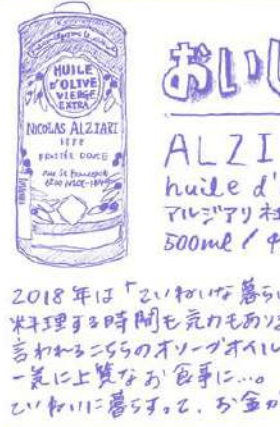 HUILE
D'OLIVE
VIERGE
EXTRA
NICOLAS ALZIARI
1878
FRUITÉE DOUCE
おいし
ALZI
huile d'
アルジアリ社
500ml /
2018年は「ていねいな暮ら
料理する時間も元力もあり
言われるこちらのオリーブオイル
一気に上質なお食事に…。
ていねいに暮らすって、お金か